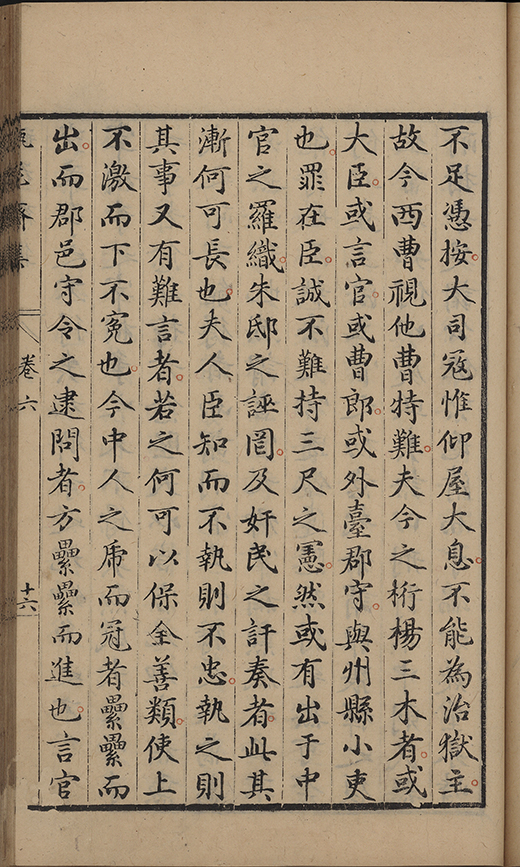 不足憑按大司寇惟仰屋大息不能為治獄主
故今西曹視他曹特難夫今之桁楊三木者或
大臣或言官或曹郎或外臺郡守與州縣小吏
也罪在臣誠不難持三尺之憲然或有出于中
官之羅織朱邸之誣罔及奸民之訐奏者此其
漸何可長也夫人臣知而不執則不忠執之則
其事又有難言者若之何可以保全善類使上
不激而下不冤也今中人之虎而冠者纍纍而
出而郡邑守令之逮問者方纍纍而進也言官
集
卷六
十六